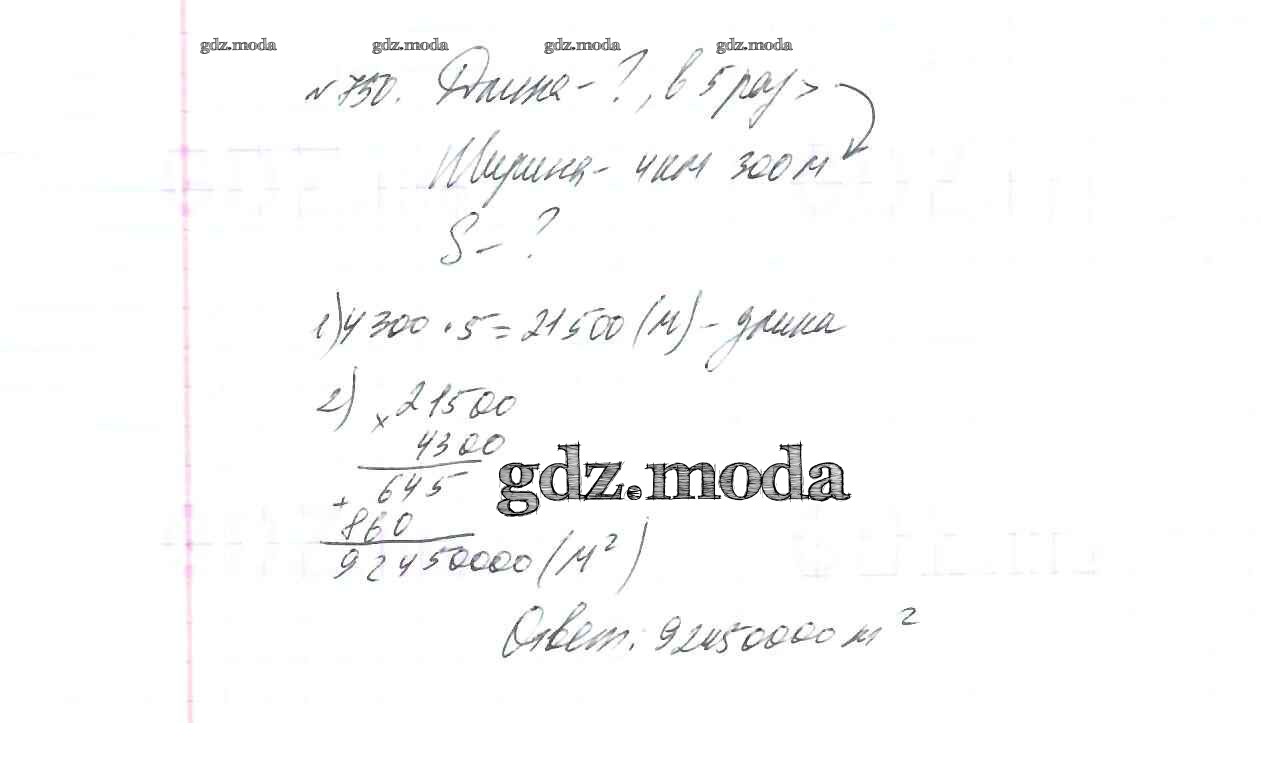 gdz.moda gdz.moda gdz.moda gdz.moda
№750. Длина - ?, в 5 раз >
Ширина - 4 км 300 м
S - ?
1) 4300 · 5 = 21500 (м) - длина
2) × 21500
4300
+ 645
860
92450000 (м²)
gdz.moda
Ответ: 92450000 м²